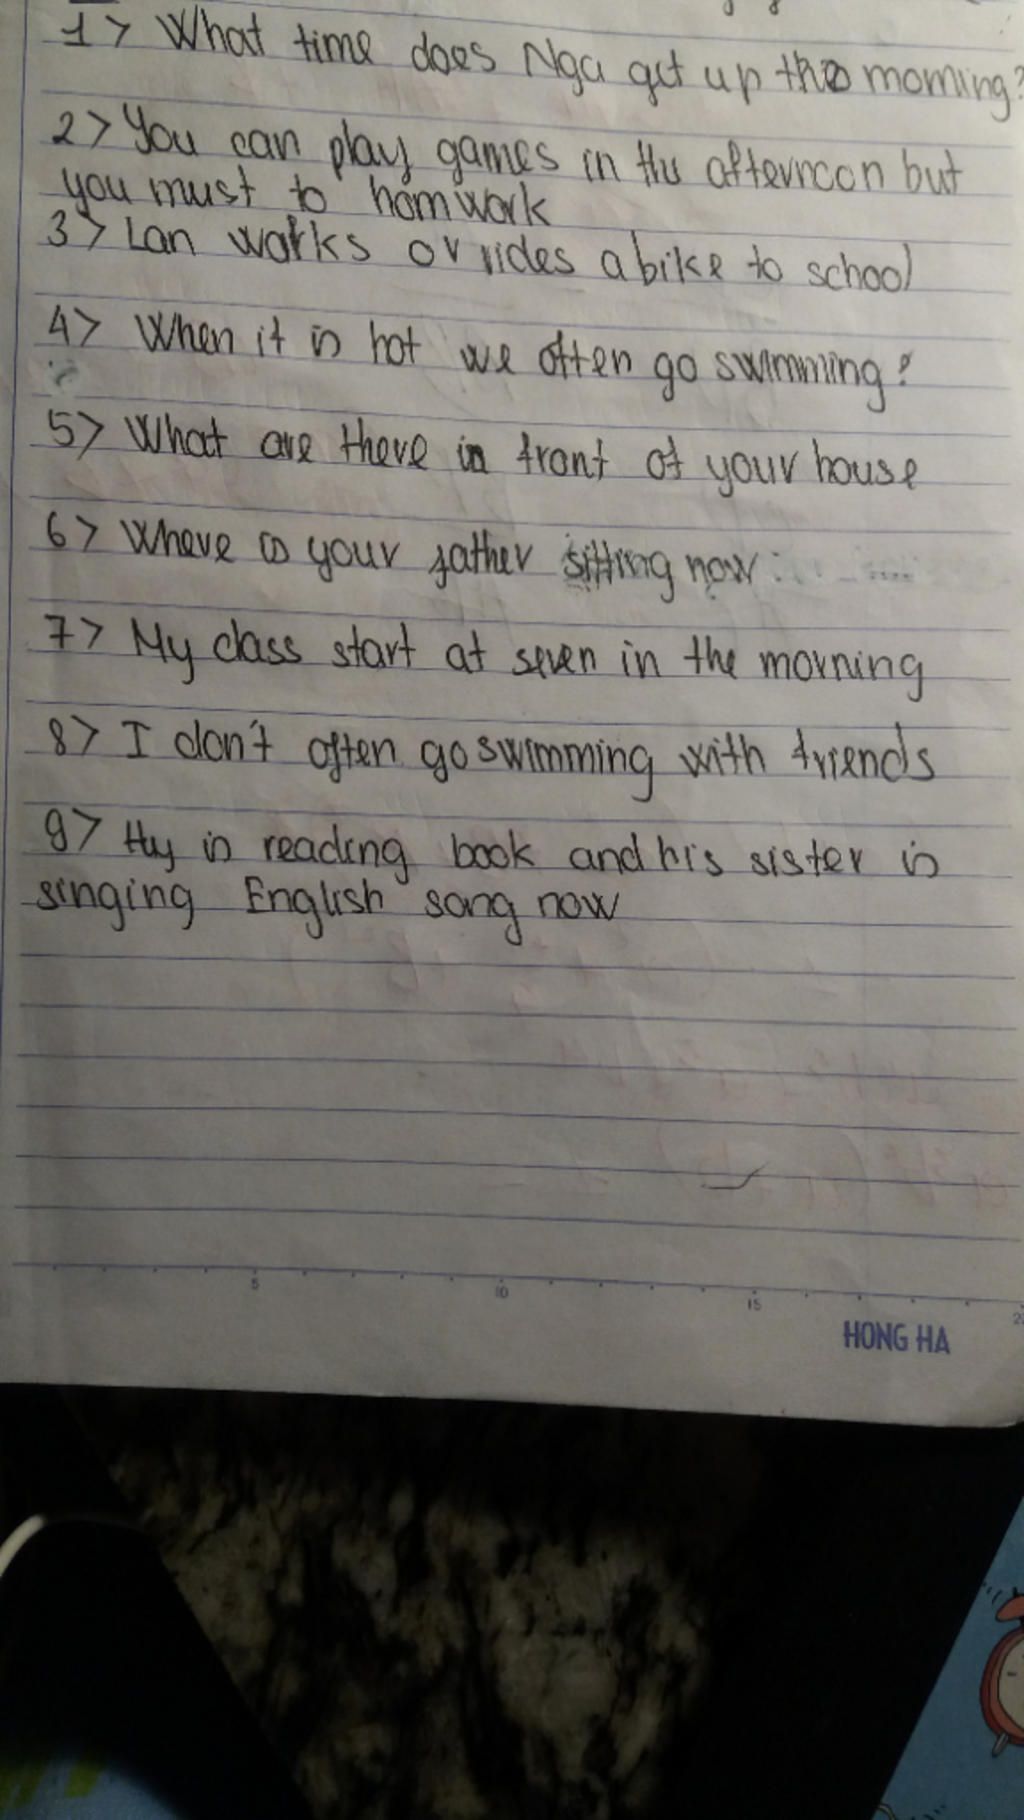 1> What time does Nga get up the morning?
2> You can play games in the afternoon but
you must to homwork
3> Lan warks or rides a bike to school
4> When it is hot we often go swimming?
5> What are there in front of your house
6> Where is your father sitting now
7> My class start at seven in the morning
8> I don't often go swimming with friends
9> Hy is reading book and his sister is
singing English song now
5 10 15
HONG HA